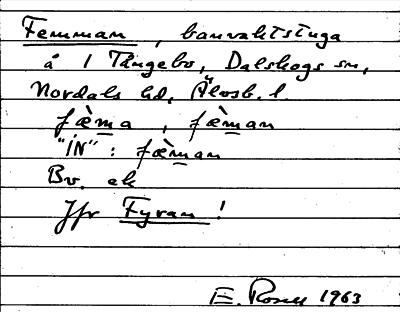 Femman, banvaktstuga
å 1 Tångebo, Dalskogs sn,
Nordals hd, Älvsb. l.
fæ̀ma, fæ̀man
"IN": fæ̀man
Bv. ek
Jfr Fyran!
E. Rosell 1963